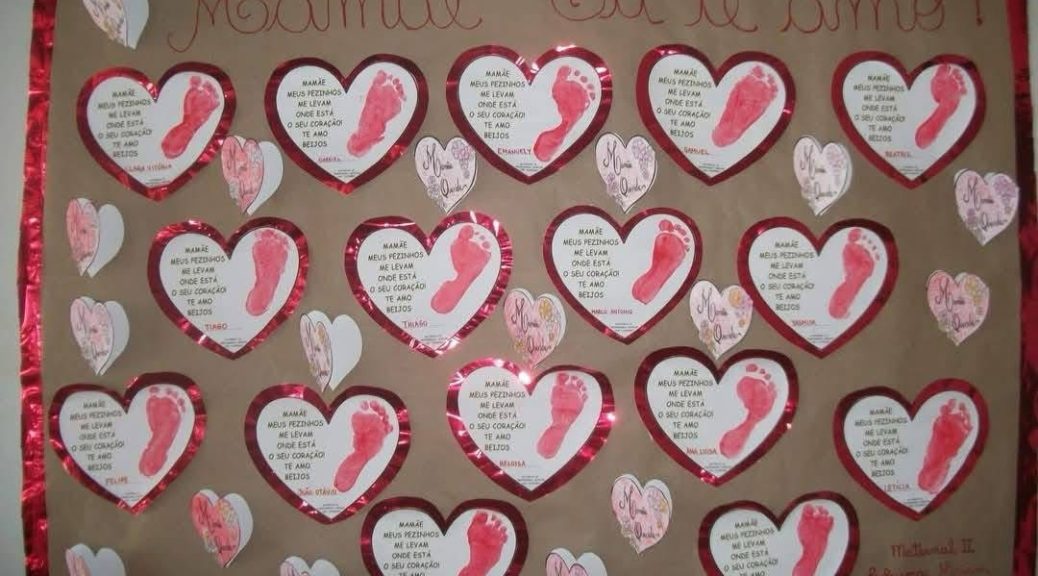 Mamãe Eu te amo!
MAMÃE
MEUS PEZINHOS
ME LEVAM
ONDE ESTÁ
O SEU CORAÇÃO!
TE AMO
BEIJOS
CLARA VITÓRIA
MAMÃE
MEUS PEZINHOS
ME LEVAM
ONDE ESTÁ
O SEU CORAÇÃO!
TE AMO
BEIJOS
GABRIEL
MAMÃE
MEUS PEZINHOS
ME LEVAM
ONDE ESTÁ
O SEU CORAÇÃO!
TE AMO
BEIJOS
EMANUELY
MAMÃE
MEUS PEZINHOS
ME LEVAM
ONDE ESTÁ
O SEU CORAÇÃO!
TE AMO
BEIJOS
SAMUEL
MAMÃE
MEUS PEZINHOS
ME LEVAM
ONDE ESTÁ
O SEU CORAÇÃO!
TE AMO
BEIJOS
BEATRIZ
Mamãe
Querida
Mamãe
Querida
Mamãe
Querida
Mamãe
Querida
MAMÃE
MEUS PEZINHOS
ME LEVAM
ONDE ESTÁ
O SEU CORAÇÃO!
TE AMO
BEIJOS
TIAGO
MAMÃE
MEUS PEZINHOS
ME LEVAM
ONDE ESTÁ
O SEU CORAÇÃO!
TE AMO
BEIJOS
THIAGO
MAMÃE
MEUS PEZINHOS
ME LEVAM
ONDE ESTÁ
O SEU CORAÇÃO!
TE AMO
BEIJOS
MARCO ANTONIO
MAMÃE
MEUS PEZINHOS
ME LEVAM
ONDE ESTÁ
O SEU CORAÇÃO!
TE AMO
BEIJOS
Mamãe
Querida
Mamãe
Querida
Mamãe
Querida
MAMÃE
MEUS PEZINHOS
ME LEVAM
ONDE ESTÁ
O SEU CORAÇÃO!
TE AMO
BEIJOS
FELIPE
MAMÃE
MEUS PEZINHOS
ME LEVAM
ONDE ESTÁ
O SEU CORAÇÃO!
TE AMO
BEIJOS
JOÃO OTÁVIO
MAMÃE
MEUS PEZINHOS
ME LEVAM
ONDE ESTÁ
O SEU CORAÇÃO!
TE AMO
BEIJOS
HELOISA
MAMÃE
MEUS PEZINHOS
ME LEVAM
ONDE ESTÁ
O SEU CORAÇÃO!
TE AMO
BEIJOS
ANA LUISA
MAMÃE
MEUS PEZINHOS
ME LEVAM
ONDE ESTÁ
O SEU CORAÇÃO!
TE AMO
BEIJOS
LETICIA
Mamãe
Querida
MAMÃE
MEUS PEZINHOS
ME LEVAM
ONDE ESTÁ
O SEU CORAÇÃO!
MAMÃE
MEUS PEZINHOS
ME LEVAM
ONDE ESTÁ
O SEU CORAÇÃO!
Maternal II